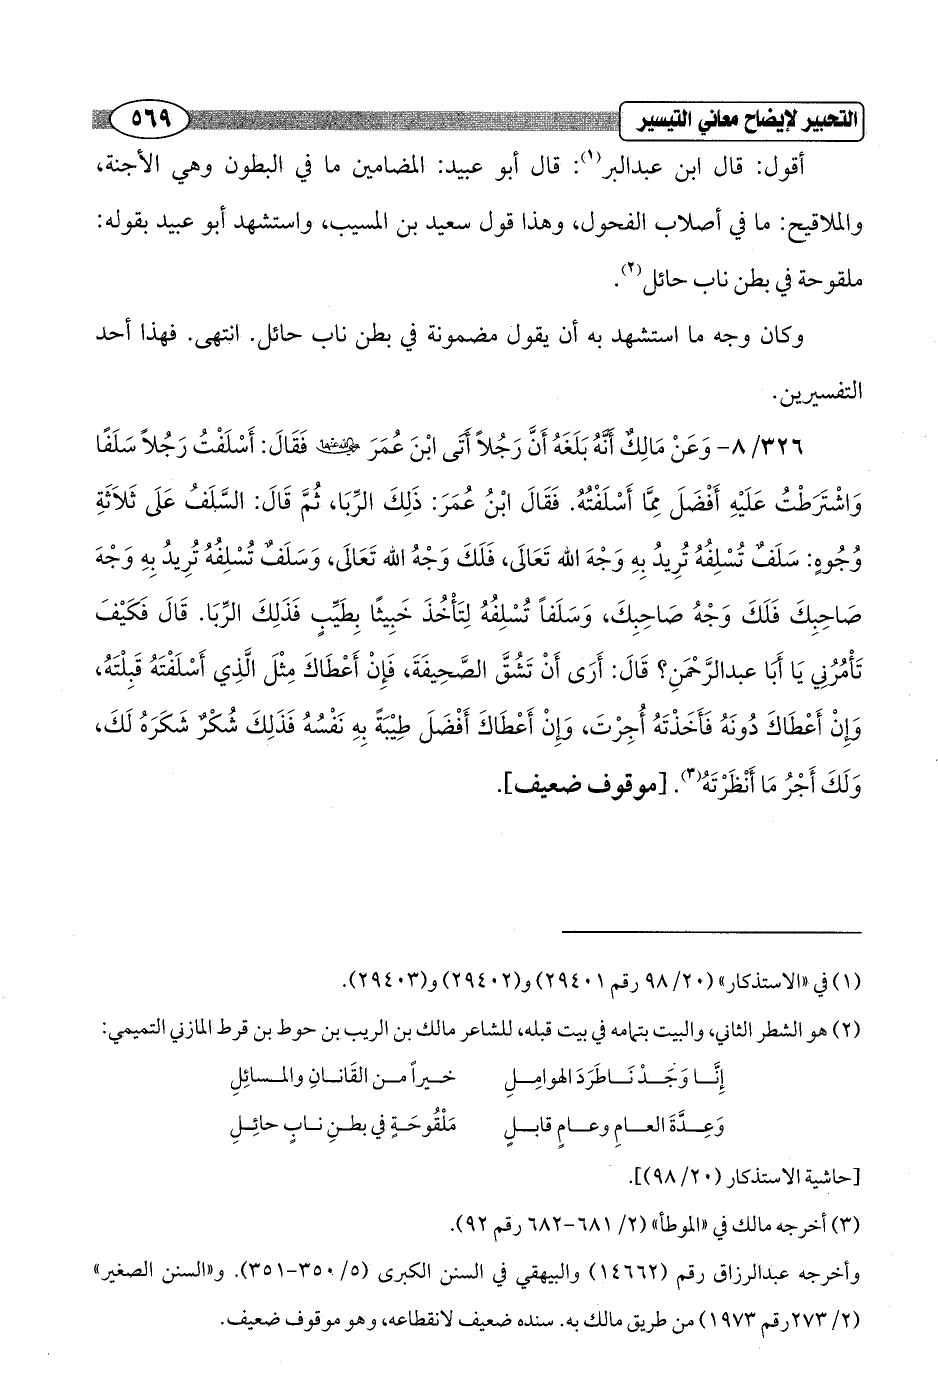 التحبير لإيضاح معاني التيسير
٥٦٩
أقول: قال ابن عبدالبر(١): قال أبو عبيد: المضامين ما في البطون وهي الأجنة،
والملاقيح: ما في أصلاب الفحول، وهذا قول سعيد بن المسيب، واستشهد أبو عبيد بقوله:
ملقوحة في بطن ناب حائل(٢).
وكان وجه ما استشهد به أن يقول مضمونة في بطن ناب حائل. انتهى. فهذا أحد
التفسيرين.
٨/٣٢٦- وَعَنْ مَالِكٌ أَنَّهُ بَلَغَهُ أَنَّ رَجُلاً أَتَى ابْنَ عُمَرَ رضي الله عنهما فَقَالَ: أَسْلَفْتُ رَجُلاً سَلَفًا
وَاشْتَرَطْتُ عَلَيْهِ أَفْضَلَ مِمَّا أَسْلَفْتُهُ. فَقَالَ ابْنُ عُمَرَ: ذَلِكَ الرِّبَا، ثُمَّ قَالَ: السَّلَفُ عَلَى ثَلاَثَةِ
وُجُوهٍ: سَلَفٌ تُسْلِفُهُ تُرِيدُ بِهِ وَجْهَ الله تَعَالَى، فَلَكَ وَجْهُ الله تَعَالَى، وَسَلَفٌ تُسْلِفُهُ تُرِيدُ بِهِ وَجْهَ
صَاحِبِكَ فَلَكَ وَجْهُ صَاحِبِكَ، وَسَلَفاً تُسْلِفُهُ لِتَأْخُذَ خَبِيثًا بِطَيِّبٍ فَذَلِكَ الرِّبَا. قَالَ فَكَيْفَ
تَأْمُرُنِي يَا أَبَا عبدالرَّحْمَنِ؟ قَالَ: أَرَى أَنْ تَشُقَّ الصَّحِيفَةَ، فَإِنْ أَعْطَاكَ مِثْلَ الَّذِي أَسْلَفْتَهُ قَبِلْتَهُ،
وَإِنْ أَعْطَاكَ دُونَهُ فَأَخَذْتَهُ أُجِرْتَ، وَإِنْ أَعْطَاكَ أَفْضَلَ طِيْبَةً بِهِ نَفْسُهُ فَذَلِكَ شُكْرٌ شَكَرَهُ لَكَ،
وَلَكَ أَجْرُ مَا أَنْظَرْتَهُ(٣). [موقوف ضعيف].
(١) في «الاستذكار» (٩٨/٢٠ رقم ٢٩٤٠١) و(٢٩٤٠٢) و(٢٩٤٠٣).
(٢) هو الشطر الثاني، والبيت بتمامه في بيت قبله، للشاعر مالك بن الريب بن حوط بن قرط المازني التميمي:
إنَّا وَجَدْنَا طَرَدَ الهوامِلِ خيراً من القَانَانِ والمسائِلِ
وَعِدَّةَ العامِ وعامٍ قابلٍ مَلْقُوحَةٍ في بطنِ نابٍ حائِلِ
[حاشية الاستذكار (٩٨/٢٠)].
(٣) أخرجه مالك في «الموطأ» (٢/ ٦٨١-٦٨٢ رقم ٩٢).
وأخرجه عبدالرزاق رقم (١٤٦٦٢) والبيهقي في السنن الكبرى (٥/ ٣٥٠-٣٥١). و«السنن الصغير»
(٢/ ٢٧٣رقم ١٩٧٣) من طريق مالك به. سنده ضعيف لانقطاعه، وهو موقوف ضعيف.